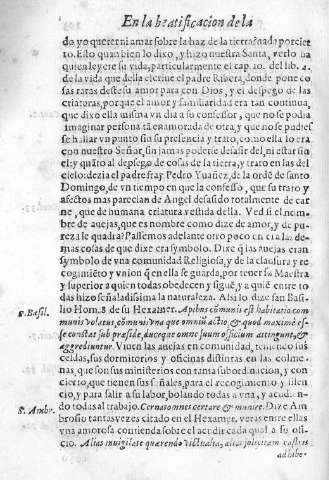 En la beatificacion de la
do yo querer ni amar sobre la haz de la tierra? nada por cier
to. Esto quan bien lo dixo, y hizo nuestra Santa, verlo ha
quien leyere su vida, particularmente el cap. 10. del lib. 4.
de la vida que della escriue el padre Ribera, donde pone co
sas raras deste su amor para con Dios, y el despego de las
criaturas, porque el amor y familiaridad era tan continua,
que dixo ella misma vn dia a su confessor, que no se podia
imaginar persona tã enamorada de otra, y que no se pudies
se hallar vn punto sin su presencia y trato, como ella lo era
con nuestro Señor, sin jamas poderse del, ni estar sin
el: y quãto al despego de cosas de la tierra, y trato en las del
cielo: dezia el padre fray Pedro Yuañez, de la ordẽ de santo
Domingo, de vn tiempo en que la confessò, que su trato y
afectos mas parecian de Angel desasido totalmente de car
ne, que de humana criatura vestida della. Ved si el nom-
bre de auejas, que es nombre como dize de amor, y de pu-
reza le quadra? Passemos adelante otro poco en a las de-
mas cosas de que dixe era symbolo. Dixe q̃ las auejas eran
symbolo de vna comunidad Religiosa, y de la clausura y re
cogimiẽto y vnion q̃ en ella se guarda, por tener su Maestra
y superior a quien todas obedecen y sigue, y a quiẽ entre to
das hizo señaladissima la naturaleza. Assi lo dize san Basi-
g. Basil.
lio Hom. 8 de su Hexamer. Apibus cõmunis est habitatio com
munis volatus, cõmunis vna que omniũ actio, & quod maximè es-
se constat sub præside, ducéque omne suum officium attingunt, &
aggrediuntur. Viuen las auejas en comunidad, teniẽdo sus
celdas, sus dormitorios y oficinas distintas en las colme-
nas, que son sus ministerios con tanta subordinacion, y con
cierto, que tienen sus señales, para el recogimiento y silen
cio, y para salir a su labor, bolando todas a vna, y acudien-
S. Ambr.
do todas al trabajo. Cernas omnes certare & munere. Dize Am
brosio tantas vezes citado en el Hexamer. veras entre ellas
vna amorosa contienda sobre el acudir cada qual a su ofi-
cio. Alias inuigilare quærendo victualia, alias
adhibe-